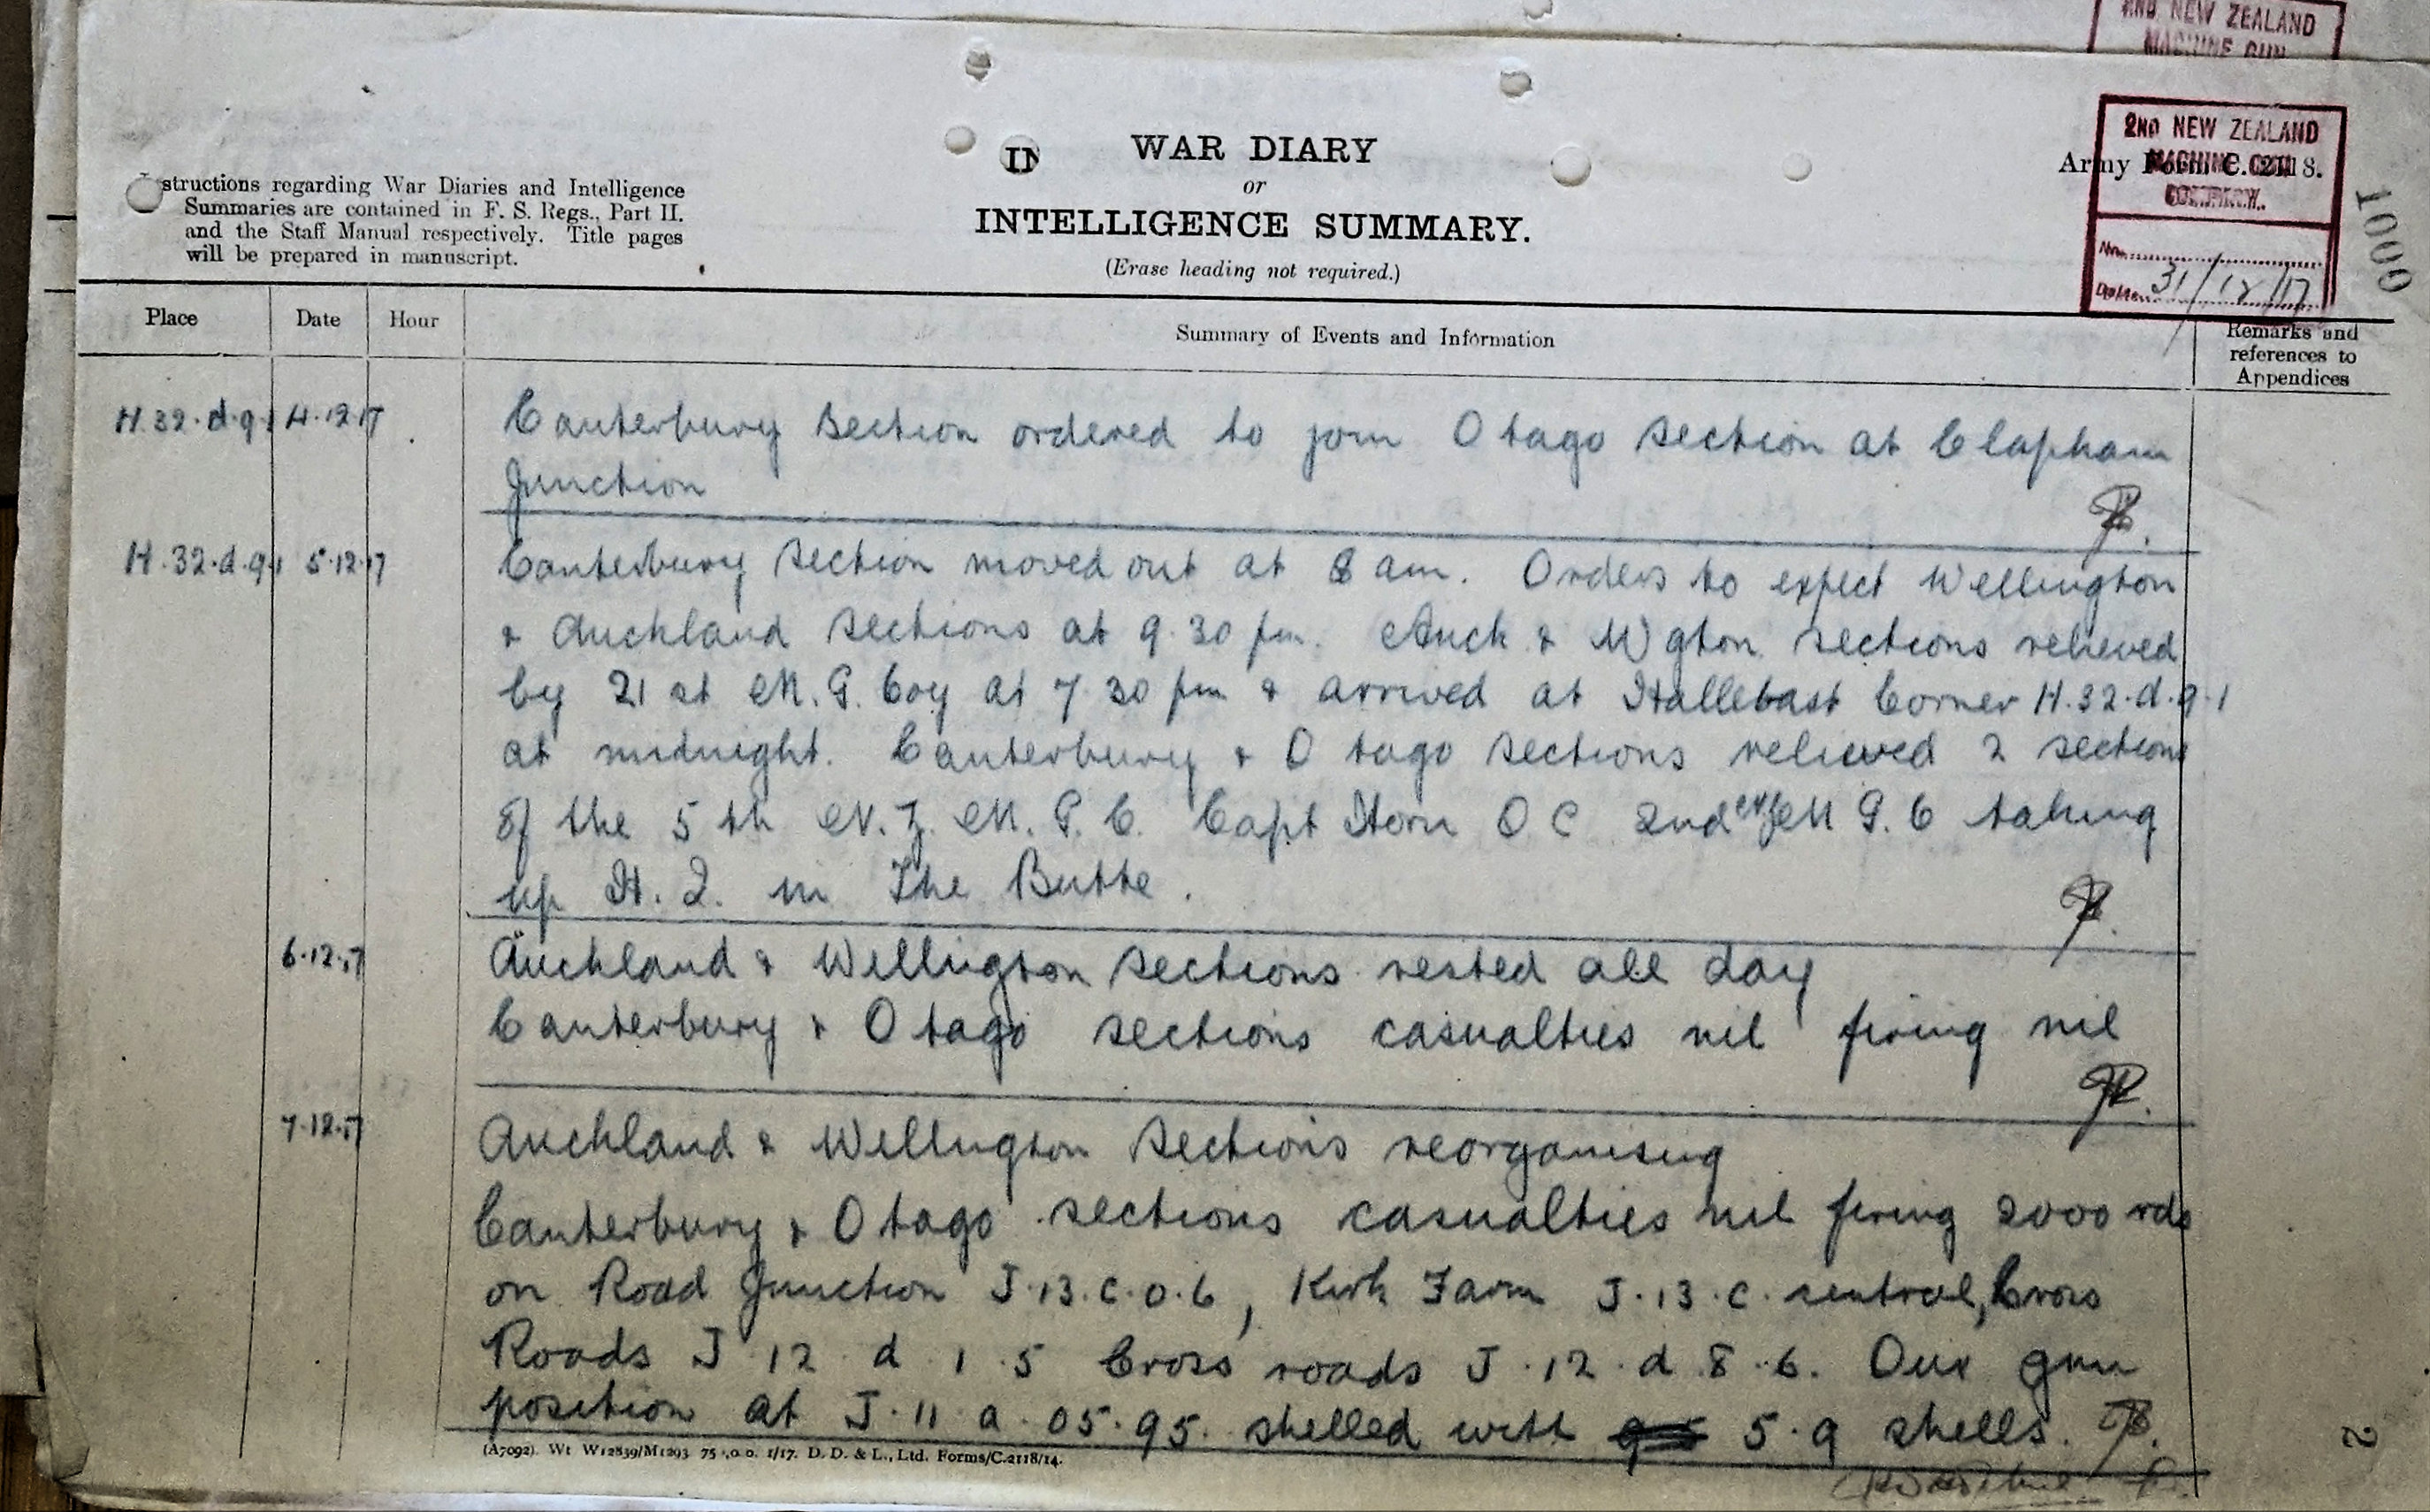 2ND NEW ZEALAND
MACHINE GUN
2ND NEW ZEALAND
MACHINE GUN
Army Form C. 2118.
No.
Date 31/12/17
1000
IN
WAR DIARY
or
INTELLIGENCE SUMMARY.
(Erase heading not required.)
structions regarding War Diaries and Intelligence
Summaries are contained in F. S. Regs., Part II.
and the Staff Manual respectively. Title pages
will be prepared in manuscript.
Place Date Hour Summary of Events and Information Remarks and
references to
Appendices
H.32.d.9.1 4.12.17 Canterbury Section ordered to join Otago Section at Clapham
Junction
H.32.d.9.1 5.12.17 Canterbury Section moved out at 8 am. Orders to expect Wellington
& Auckland Sections at 9.30 pm. Auck & Wgton sections relieved
by 21st M.G. Coy at 7.30 pm & arrived at Hallebast Corner H.32.d.9.1
at midnight. Canterbury & Otago Sections relieved 2 sections
of the 5th N.Z. M.G.C. Capt Horn OC 2nd NZ M G.C taking
up H.Q. in The Butte.
6.12.17 Auckland & Wellington Sections rested all day
Canterbury & Otago sections casualties nil firing nil
7.12.17 Auckland & Wellington Sections reorganising
Canterbury & Otago sections casualties nil firing 2000 rds
on Road Junction J.13.c.0.6, Kirk Farm J.13.c. central, Cross
Roads J 12 d 1.5 Cross roads J.12.d 8.6. Our gun
position at J.11 a 05.95. shelled with 5.9 shells.
(A7092). Wt W12839/M1293 75 ,0.0. 1/17. D. D. & L., Ltd. Forms/C.2118/14.
2